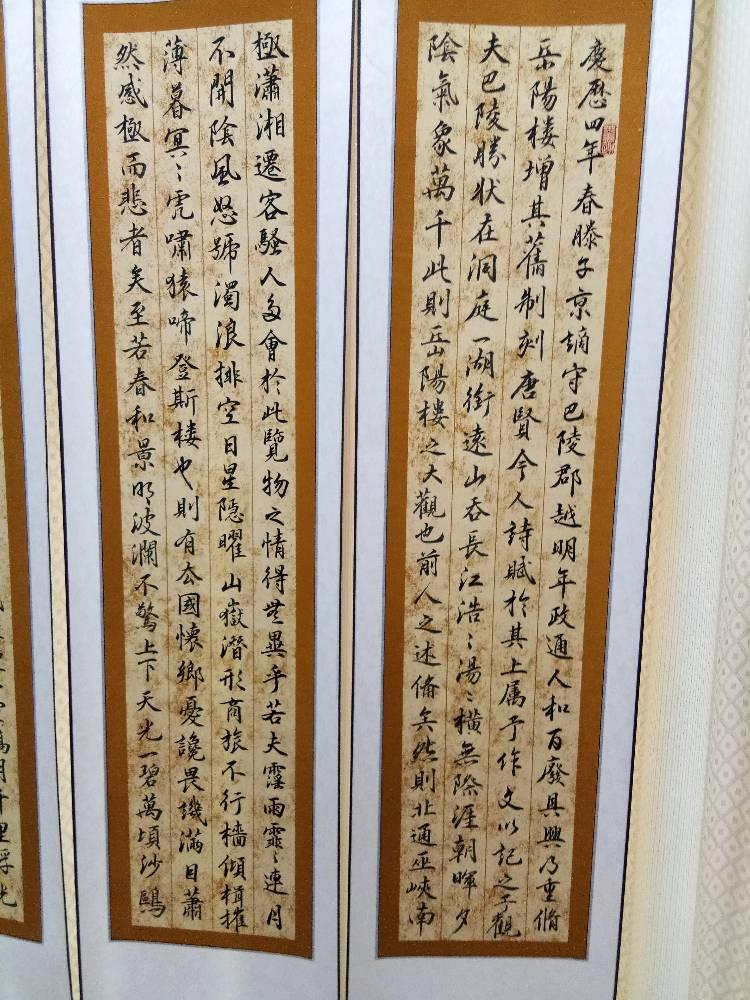 慶歷四年春滕子京謫守巴陵郡越明年政通人和百廢具興乃重脩
岳陽楼增其舊制刻唐賢今人詩賦於其上属予作文以記之予觀
夫巴陵勝狀在洞庭一湖銜遠山吞長江浩〻湯〻橫無際涯朝暉夕
陰氣象萬千此則岳陽樓之大觀也前人之述俻矣然則北通巫峽南
極瀟湘遷客騷人多會於此覽物之情得無異乎若夫霪雨霏〻連月
不開陰風怒號濁浪排空日星隱曜山嶽潛形商旅不行檣傾楫摧
薄暮冥〻虎嘯猿啼登斯楼也則有去國懷鄉憂讒畏譏滿目蕭
然感極而悲者矣至若春和景明波瀾不驚上下天光一碧萬頃沙鷗
月千里浮光